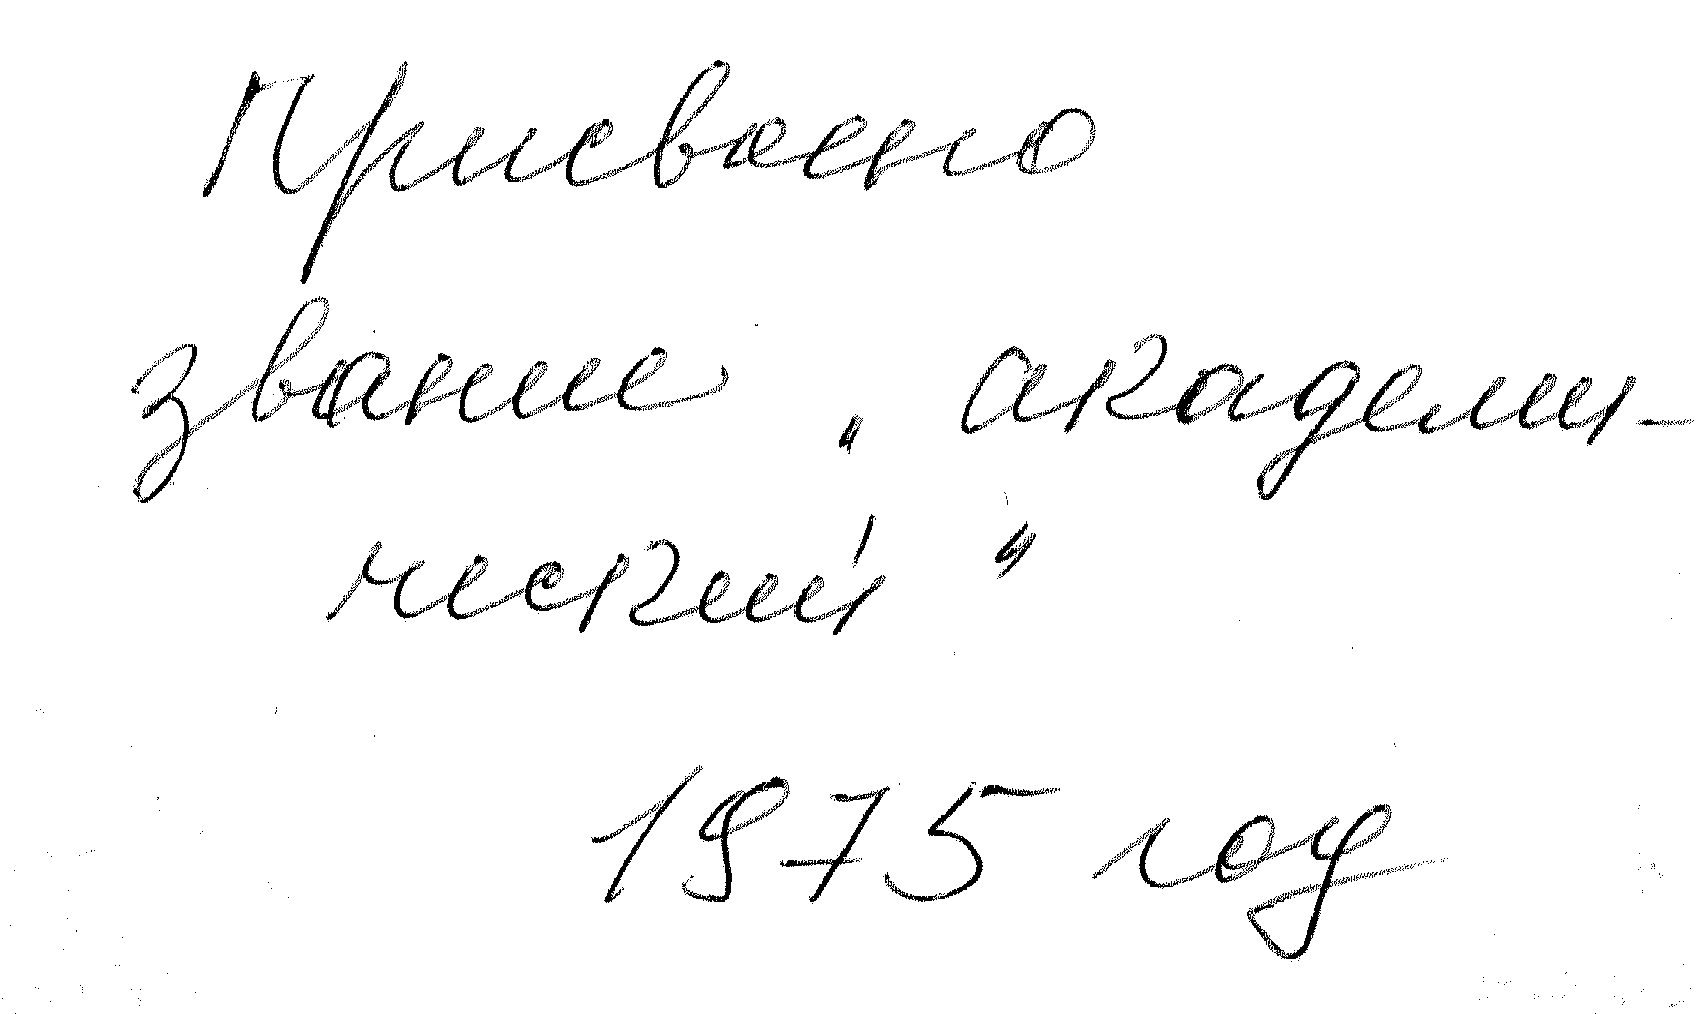 Присвоено
звание „академи-
ческий“
1975 год